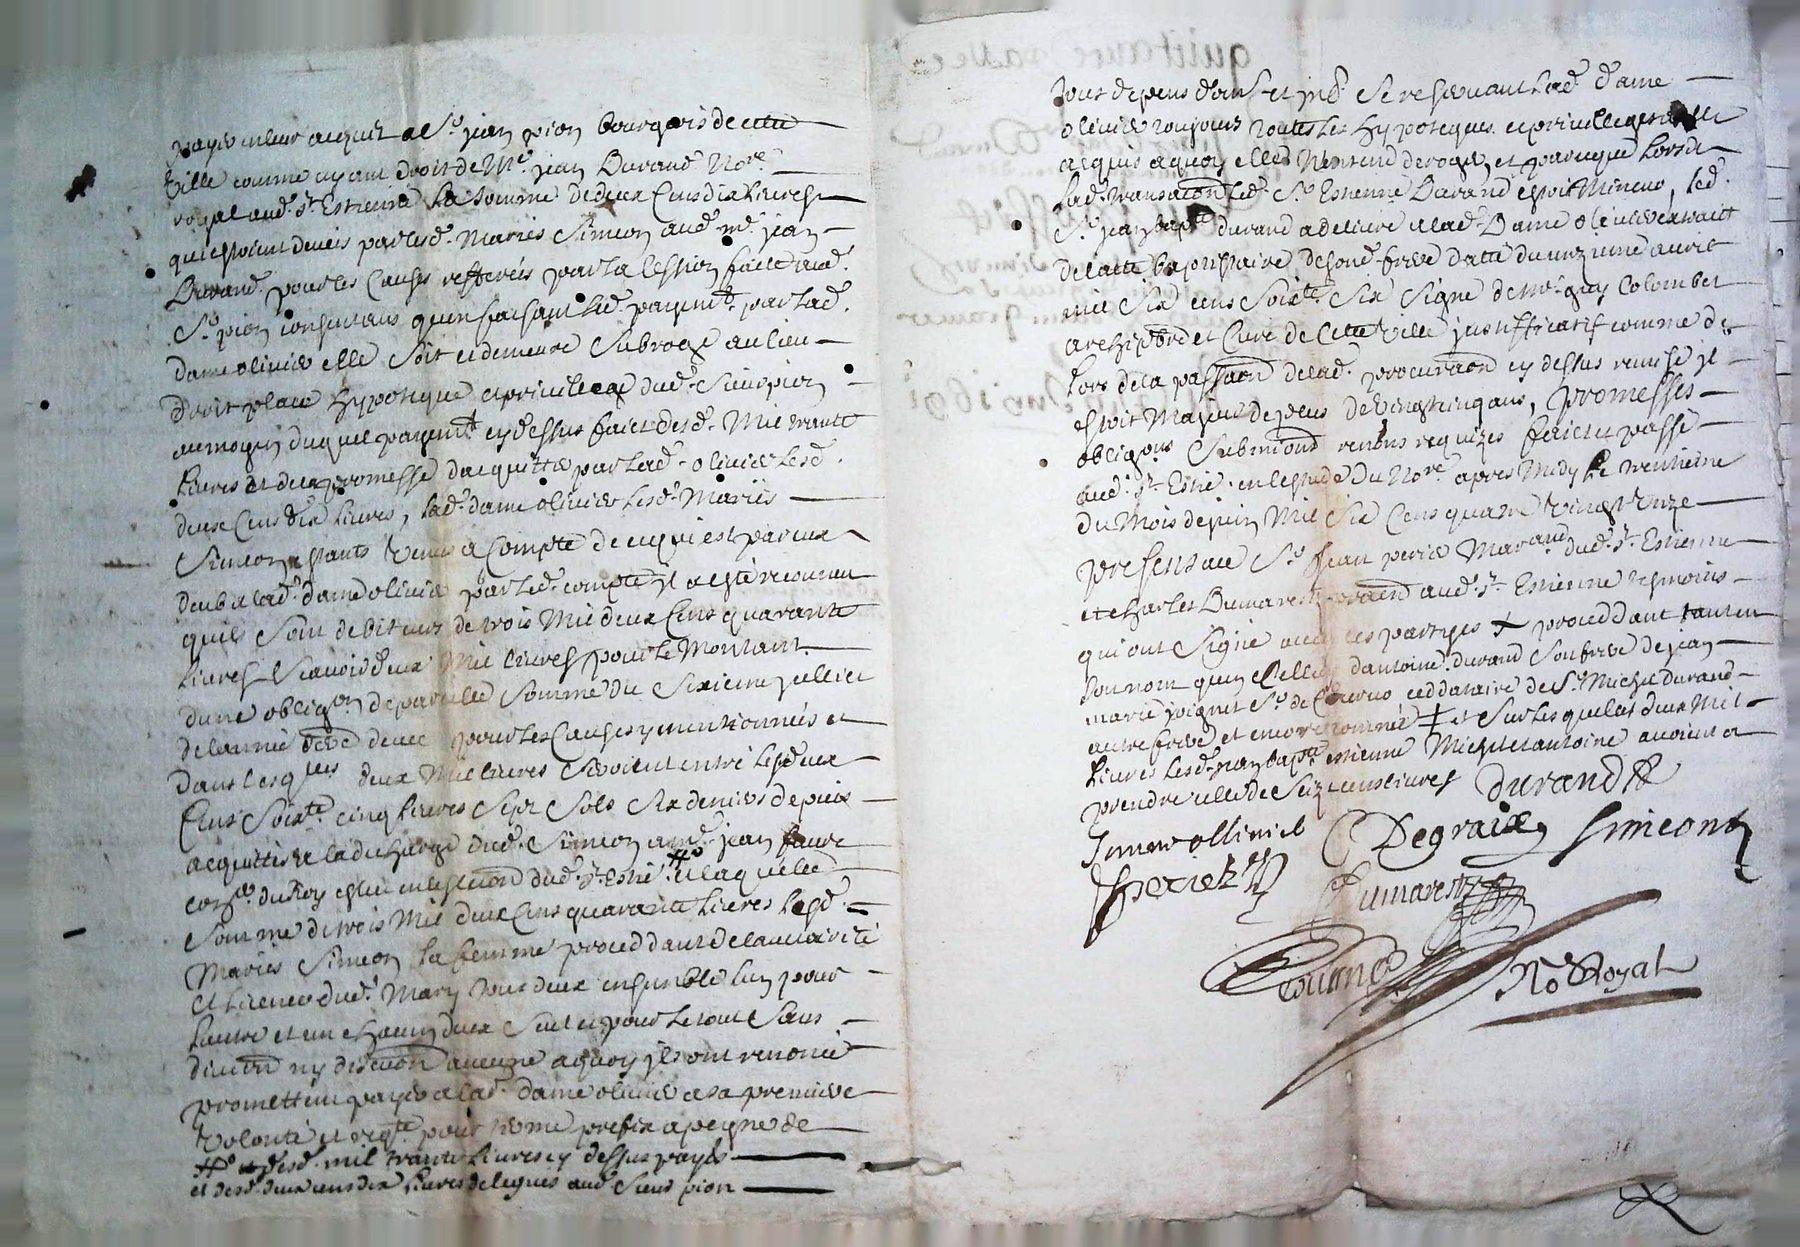 payer en leur acquit a Sr jean pion bourgois de cette
ville comme ayant droit de Me jean Durand Nore
royal aud. St Estienne la somme de deux Cens dix livres
qui estoient deues par lesd. Mariés Simeon aud. Me jean
Durand pour les Causes refferées par la cession faite aud.
Sr pion consentans qu'en faisant led. payemt. par lad.
dame olivier elle soit et demeure subrogé au lieu
droit place hypoteque et privilege dud. Sieur pion
au moyen duquel payemt. cy dessus faict desd. Mil trante
livres et de la promesse dacquitter par lad. olivier lesd.
deux Cens dix livres, lad. dame olivier lesd. Mariés
Simeon estants venus a Compte de ce qui est par eux
deub a lad. dame olivier par led. compte il a esté reconneu
quils sont debiteurs de trois Mil deux Cens quarante
livres Scavoir deux Mil livres pour le Montant
dune obligon. de pareille somme du sixieme juillet
de lannée deue pour les Causes y mentionnées et
dans lesquels deux Mil livres estoient entré les deux
Cens soixte. cinq livres sept sols six deniers depuis
acquittés a la descharge dud. Simeon a me. jean faure
coner. du Roy esleu en leslection dud. St. Estie. # a laquelle
somme de trois Mil deux Cens quarante livres lesd.
Mariés Simeon la femme proceddant de lauctorité
et licence dud. Mary tous deux ensemble lun pour
lautre et un chacun deux seul et pour le tout sans
division ny discution aucune a quoy ils ont renoncé
promettent payer a lad. dame olivier a sa premiere
volonté et reqte. pour terme prefix a peyne de
# et desd. mil trante livres cy dessus payés
et desd. deux cens dix livres deleguées aud. Sieur pion
tous depens doms. et intd. Se reservant lad. dame
olivier toujours toutes les hypoteques et privilleges
acquis a quoy elle Nentend deroger et parceque lors de
lad. transaction led. Sr Estienne Durand estoit Mineur, led.
Sr. jean bapte. durand a delivré a lad. Dame olivier extrait
de lacte baptistaire de sond. frere datté du unzieme avril
mil Six cens Soixte. Six Signé de Mre. guy Colombet
archiprbre et Curé de Cette Ville justifficatif comme de
lors de la passaon de lad. procuraon cy dessus remise il
estoit Majeur de plus de Vingt cinq ans, promesses
obligaons Submions renons requizes faict et passé
aud. St. Estie. en lestude du Nore. apres Midy le trentieme
du Mois de juin Mil Six Cens quatre Vingt Unze
presens a ce Sr Jean perier Marand dud. St. Estienne
et charles Dumarest praen aud. St. Estienne tesmoins
qui ont signé avec les partyes + proceddant tant en
son nom quen celluy dantoine durand son frere de jean
marie joignet Sr. de ceddataire de Sr. Michel durand
autre frere et encore comme + et Sur lesquelles deux Mil
livres lesd. jean bapte. estienne Michel et antoine avoient a
prendre celle de Seize cens livres Durand
Simeon ollivier Degraix Simeon
Periez Dumarest
Nore Royal